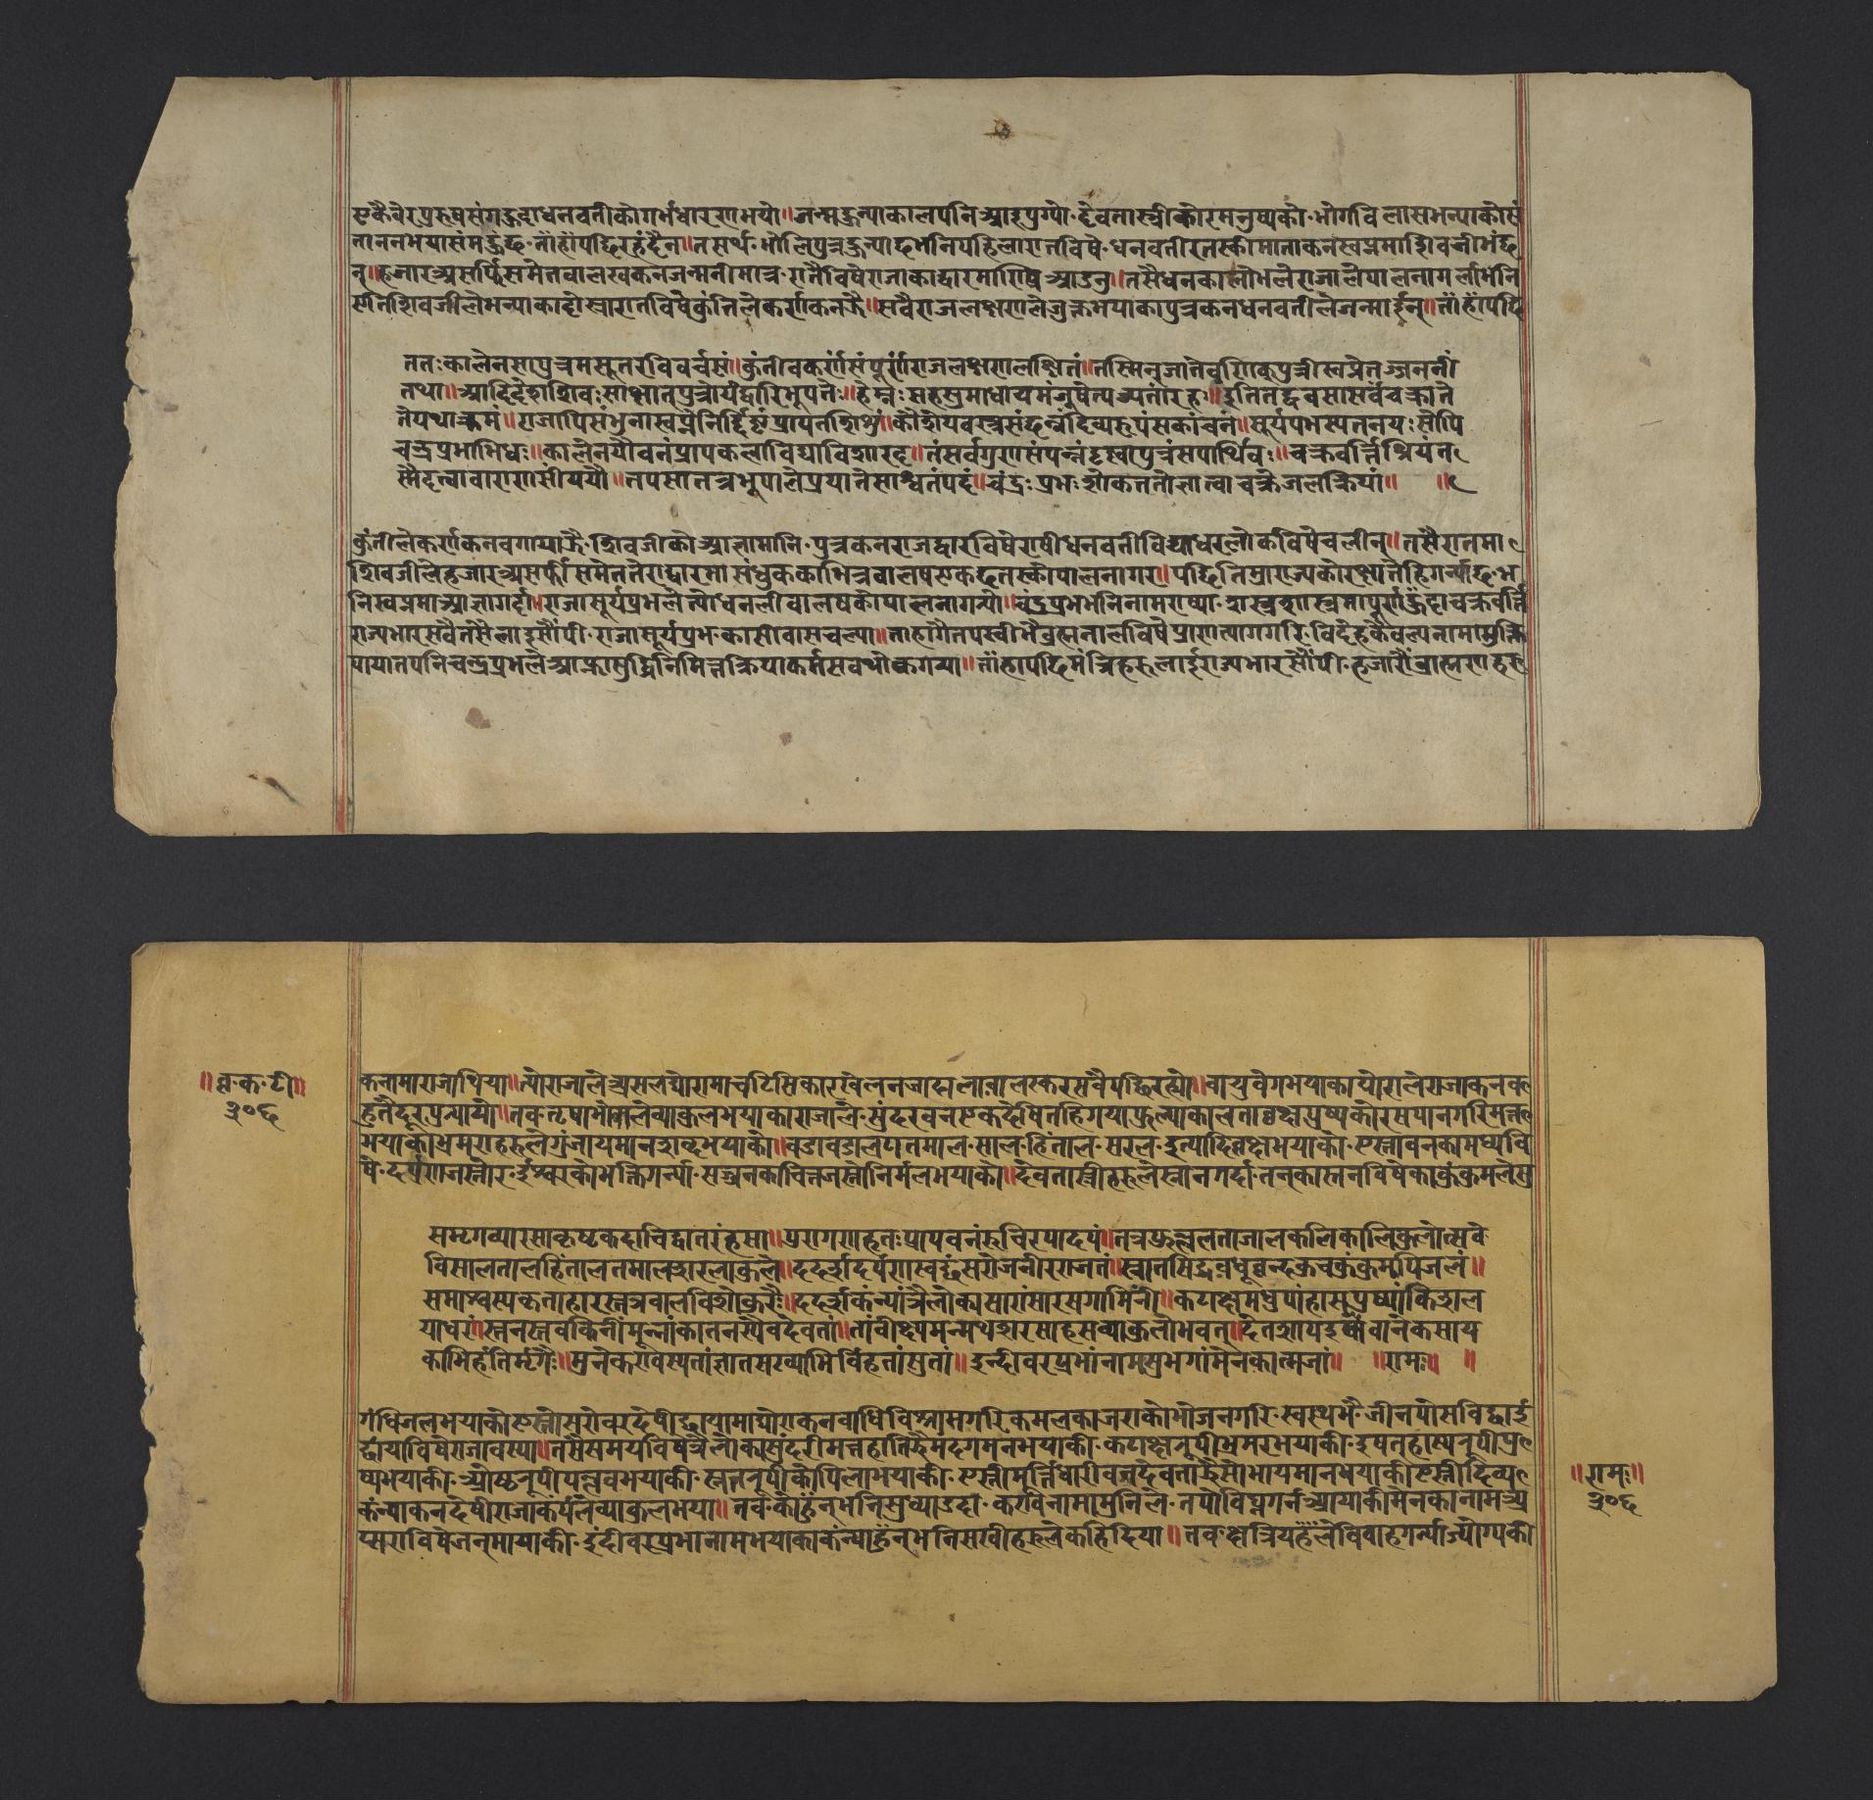 एकैवेर पुरुष संग हुदा धनवतीको गर्भधारण भयो॥ जन्महुन्या काल पनि आइपुग्यो देवता स्त्रीको र मनुष्यको भोगविलास भन्याको सं
तानन भयासंम हुंछ तांहां पछि रहंदैन॥ तसर्थ भोलि पुत्र हुन्याछ भनि पहिला रातविषे धनवती
नु॥ हजार असर्फि समेत बालखकन जन्मनीमात्र रातैविषे राजाका द्वारमा राषि आउनु॥ तसै धनका लोभले राजाले पालना गर्ला भनि
शिवजीले भन्याका दोस्त्रा रातविषे कुंतिले कर्णकन झै॥ सवै राजलक्षणले जुक्त भयाका पुत्रकन धनवतीले जन्माईन्॥ तांहां पछि
ततः कालेन सा पुत्रमसूत रविवर्चसं॥ कुंतीव कर्णं संपूर्णराजलक्षणलक्षितं॥ तस्मिन् जाते वणिक्पुत्री स्वप्नेतज्जननीं
तथा॥ आदिदेश शिवः साक्षात् पुत्रोयं द्वारि भूपतेः॥ हेम्नः सहस्रमाधाय मंजुषे त्यज्यतांरहः॥ इति तद्वचसा सर्वं चक्राते
ते यथाक्रमं॥ राजापि संभुना स्वप्ने निर्द्दिष्टं प्राप तं शिशुं॥ कौशेयवस्त्रसंछन्नं दिव्यरूपं सकांचनं॥ सूर्यप्रभस्य तनयः सोपि
चद्रप्रभाभिधः॥ कालेन यौवनं प्राप कलाविद्याविशारदः॥ तं सर्वगुणसंपन्नं दृष्ट्वा पुत्रं स पार्थिवः॥ चक्रवर्त्तिश्रियं त
स्मै दत्वा वाराणसीं ययौ॥ तपसा तत्र भूपाले प्रयाते सास्वतं पदं॥ चंद्रः प्रभः शोकततो ज्ञात्वा चक्रे जलक्रियां॥ ॥
कुंतीले कर्णकन वगाया झै शिवजीको आज्ञा मानि पुत्रकन राजद्वारविषे राषी धनवती विद्याधरलोकविषे चलीन्॥ तसै रातमा
शिवजीले हजार असर्फी समेत तेरा द्वारमा संधुकका भित्र वालष एक छ तस्को पालना गर॥ पछि तिम्रा राज्यको रक्षा तेहि गर्न्याछ भ
नि स्वप्नमा आज्ञा गर्दा॥ राजा सूर्यप्रभले त्यो धन ली वालषको पालना गर्‍यो॥ चंद्रप्रभ भनि नाम राष्या शस्त्र शास्त्रमा पूर्ण हुंदा चक्रवर्त्ति
राज्यभार सवै तसैलाइ सौंपी राजा सूर्यप्रभ कासीवास चल्या॥ ताहा गै तपस्वी भै ब्रह्मनालविषे प्राणत्याग गरि विदेहकैवल्य नामा मुक्ति
पाया त पनि चन्द्रप्रभले आफ्ना सुद्धिनिमित्त क्रियाकर्म सव थोक गर्‍या॥ तांहा पछि मंत्रिहरुलाई राज्यभार सौंपी हजारौं ब्राह्मणहरु
॥बृ·क·टी॥
३०६
कनामा राजा थिया॥ त्यो राजाले असल घोरामा चढि सिकार खेलन जादा लाव लस्कर सवै पछि रह्यो॥ वायुवेग भयाका घोराले राजाकन व
हुतै दूर पुर्‍यायो॥ तव तृषा भोकले व्याकुल भयाका राजाले सुंदर वन एक देषि तहि गया फुल्याका लताबृक्षा पुष्पको रसपान गरि मत्त
भयाका भ्रमराहरुले गुंजायमान शब्द भयाको॥ वडा वडा लटा तमाल साल हिंताल सरल इत्यादि बृक्ष भयाको एस्ता वनका मध्यवि
षे दर्पण जस्तो र ईश्वरको भक्ति गर्न्या सज्जनका चित्त जस्तो निर्मल भयाको॥ देवतास्त्रीहरुले स्नान गर्दा तन्का स्तनविषेका कुंकुमले सु
स मृगव्यारसाकृष्ट कदाचिद्वातरंहसा॥ प्ररागणाहृतः प्राप वनं रुचिरपादपं॥ तत्र फुल्ललताजालकलिकालिकुलोत्सवे
विसालतालहिंतालतमालसरलाकुले॥ ददर्श दर्पणस्वच्छं सरोजनीरराजितं॥ स्नातसिद्धवधूवृन्दकुचकुंकुमपिंजलं॥
समाश्वस्य कृताहारस्तत्र वालविशोत्करैः॥ ददर्श कन्यां त्रैलोक्यसारां सारसगामिनीं॥ कटाक्षमधुपां हासपुष्पां किशल
याधरां॥ स्तनस्तवकिनीं मूर्त्तां कातनस्येव देवतां॥ तां वीक्ष्य मन्मथशरसाहसव्याकुलोभवत्॥
कामिहंति र्मृगैः॥ मुनेः कण्वस्य तां ज्ञात सख्याभिर्विहतां सुतां॥ इन्दीवरप्रभां नाम सुभगां मेनकात्मजां॥ ॥रामः॥ ॥
गंधि जल भयाको एस्तो सरोवर देषी छायामा घोराकन वाधि विश्राम गरि कमलका जराको भोजन गरि स्वस्थ भै जीन पोस विछाई
छायाविषे राजा वस्या॥ तसै समयविषे त्रैलोक्यसुंदरी मत्त हात्ति झै मंदगमन भयाकी कटाक्षरुपी भ्रमर भयाकी इषत् हास्यरुपी पु
ष्प भयाकी ओष्ठरुपी पल्लव भयाकी स्तनरुपी कोपिला भयाकी एस्ती मूर्त्ति धारी वनदेवता झै सोभायमान भयाकी एस्ती दिव्य
॥रामः॥
३०६
कंन्याकन देषी राजा कंपले व्याकुल भया॥ तव को हुन् भनि सुध्याउदा कण्व नामा मुनिले तपोविघ्न गर्न आयाकी मेनका नाम अ
प्सराविषे जन्मायाकी इंदीवरप्रभा नाम भयाका कंन्या हुन् भनि सखीहरुले कहि दिया॥ तव क्षत्रियहरुले विवाह गर्न्या ज्योग्यकी